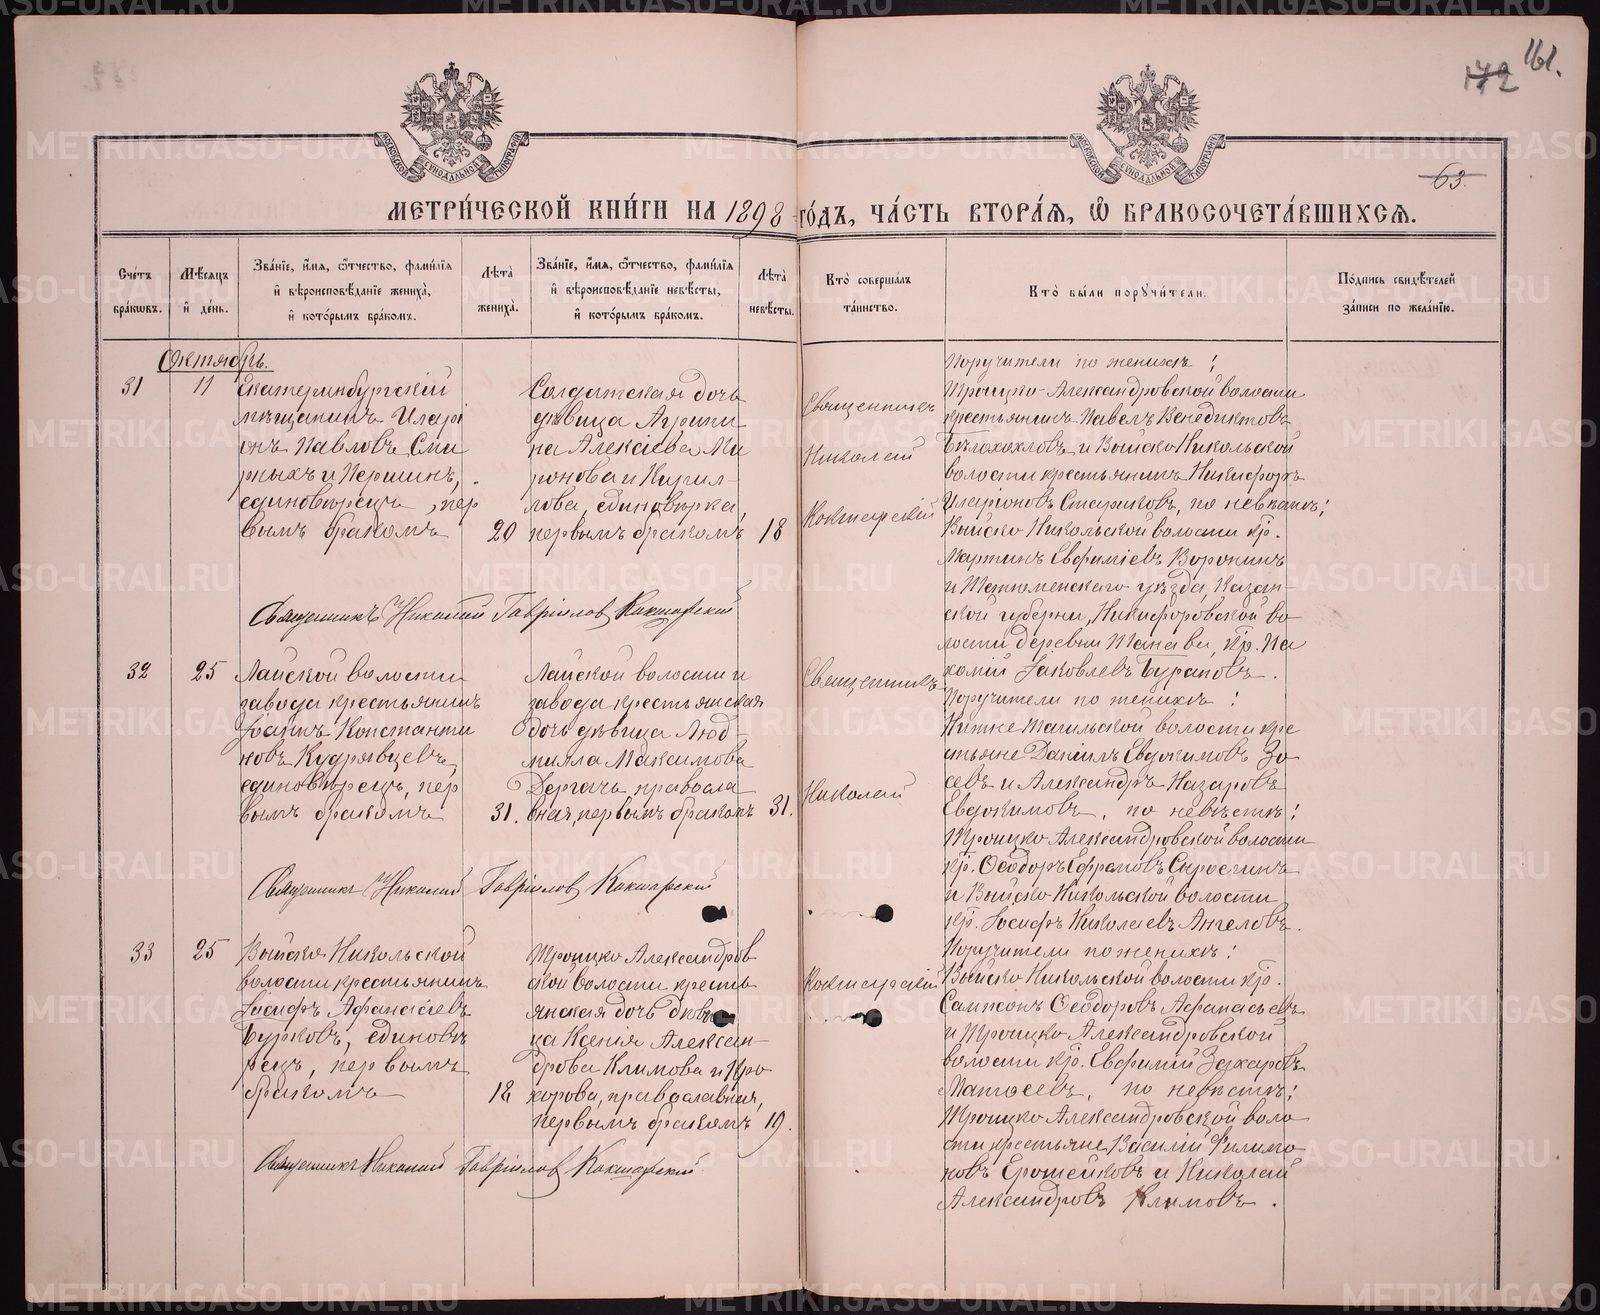 161.
172
63.
МОСКОВСКОЙ СѴНОДАЛЬНОЙ ТИПОГРАФІИ
МОСКОВСКОЙ СѴНОДАЛЬНОЙ ТИПОГРАФІИ
МЕТРИ́ЧЕСКОЙ КНИ́ГИ НА 1898 ГО́ДЪ, ЧА́СТЬ ВТОРА́Я, Ѽ БРАКОСОЧЕТА́ВШИХСЯ.
Сче́тъ бра́кѡвъ.
Мѣ́сяцъ и҆ де́нь.
Зва́нїе, и҆́мя, ѻ҆́тчество, фами́лїя и҆ вѣроисповѣ́данїе жениха̀, и҆ кото́рымъ бра́комъ.
Лѣ́та жениха̀.
Зва́нїе, и҆́мя, ѻ҆́тчество, фами́лїя и҆ вѣроисповѣ́данїе невѣ́сты, и҆ кото́рымъ бра́комъ.
Лѣ́та невѣ́сты.
Кто̀ соверша́лъ та́инство.
Кто̀ бы́ли порꙋчи́тели.
По́дпись свидѣ́телей за́писи по жела́нїю.
Октябрь.
31
11
Екатеринбургскій
мѣщанинъ Иларі
онъ Павловъ Сми
рныхъ и Першинъ,
единовѣрецъ, пер
вымъ бракомъ
20
Солдатская дочь
дѣвица Агрипи
на Алексіева Ми
ронова и Кирил-
лова, единовѣрка,
первымъ бракомъ
18
Священникъ
Николай
Кокшарскій
Поручители по женихѣ:
Троицко-Александровской волости
крестьянинъ Павелъ Венедиктовъ
Бѣлохохловъ и Выйско Никольской
волости крестьянинъ Никифоръ
Иларіоновъ Стариковъ, по невѣстѣ:
Выйско Никольской волости кр.
Мартинъ Евфиміевъ Воронинъ
и Тетюшенскаго уѣзда, Казан-
ской губерни, Никифоровской во
лости деревни кр. Па
хомій Іаковлевъ Бурановъ.
Священникъ Николай Гавріиловъ Кокшарскій
32
25
Лайской волости
завода крестьянинъ
Іоаннъ Константи
новъ Кудрявцевъ,
единовѣрецъ, пер
вымъ бракомъ
31.
Лайской волости и
завода крестьянская
дочь дѣвица Люд-
милла Максимова
Дергачъ, правосла
вная, первымъ бракомъ
31.
Священникъ
Николай
Поручители по женихѣ:
Нижне Тагильской волости кре
стьяне Даніилъ Евдокимовъ Зо
севъ и Александръ Назаровъ
Евдокимовъ, по невѣстѣ:
Троицко-Александровской волости
кр. Ѳеодоръ Ефремовъ
и Выйско Никольской волости
кр. Іосифъ Николаевъ Ангеловъ.
Священникъ Николай Гавріиловъ Кокшарскій
33
25
Выйско Никольской
волости крестьянинъ
Іосифъ Афанасіевъ
Бурковъ, единовѣ
рецъ, первымъ
бракомъ
18
Троицко Александров
ской волости кресть
янская дочь дѣви
ца Ксенія Алексан-
дрова Климова и Про
хорова, православная,
первымъ бракомъ
19.
Кокшарскій
Поручители по женихѣ:
Выйско Никольской волости кр.
Сампсонъ Ѳеодоровъ Афанасьевъ
и Троицко-Александровской
волости кр. Евфимій Захаровъ
Матѳеевъ, по невѣстѣ:
Троицко-Александровской воло
сти крестьяне, Василій Филимо
новъ Ерошенковъ и Николай
Александровъ Климовъ.
Священникъ Николай Гавріиловъ Кокшарскій
METRIKI.GASO-URAL.RU